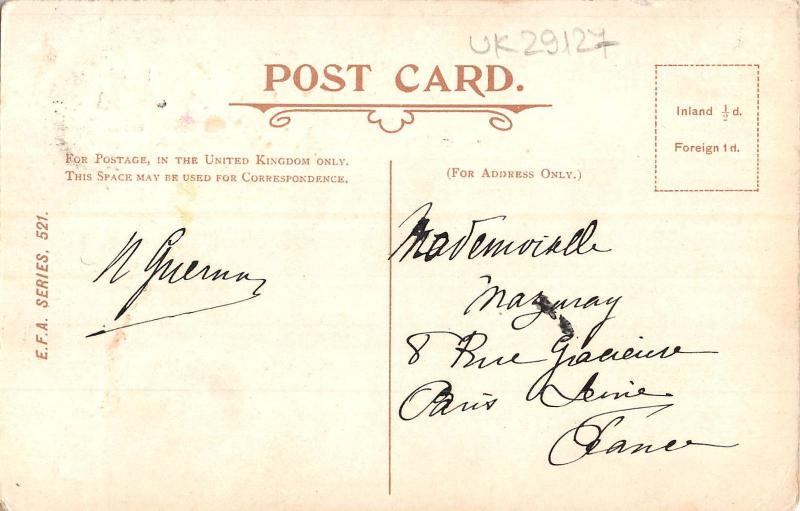 UK29127
POST CARD.
Inland ½ d.
Foreign 1 d.
FOR POSTAGE, IN THE UNITED KINGDOM ONLY.
THIS SPACE MAY BE USED FOR CORRESPONDENCE.
(FOR ADDRESS ONLY.)
E.F.A. SERIES, 521.
Mademoiselle
Mazuray
8 Rue Gracieuse
Paris Seine
France